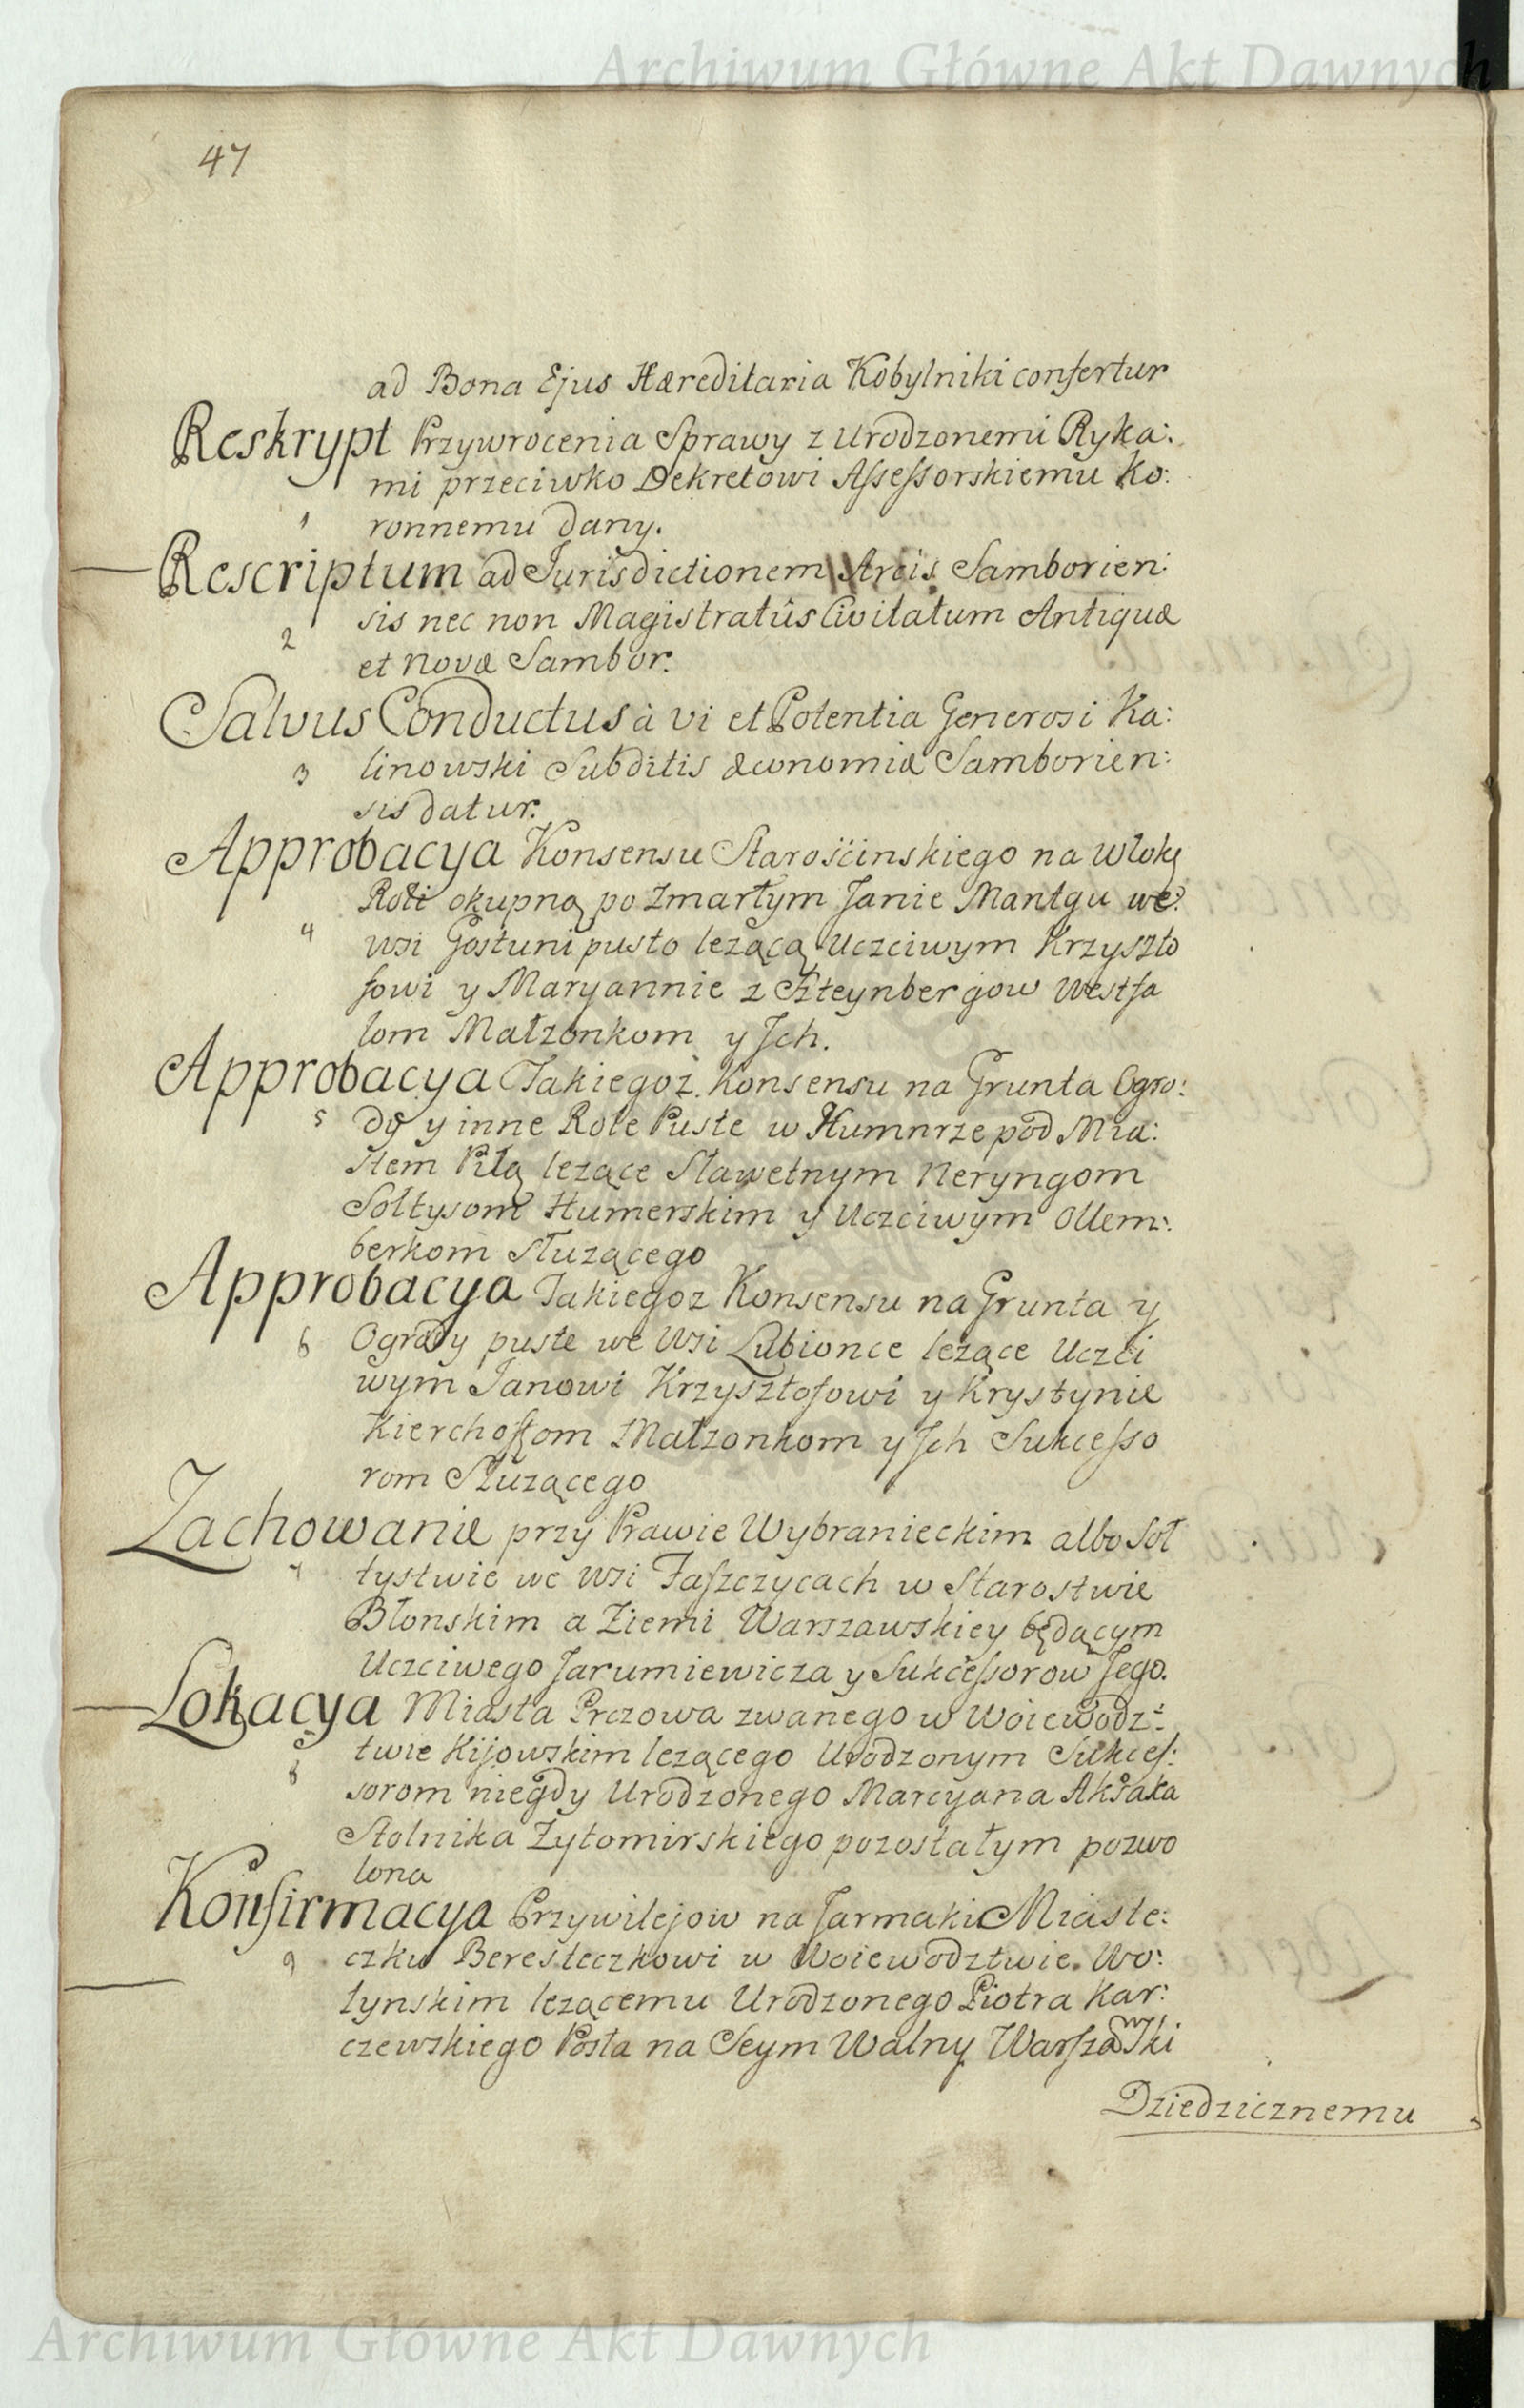 Archiwum Główne Akt Dawnych
47
ad Bona Ejus Hæreditaria Kobylniki confertur
Reskrypt Przywrocenia Sprawy z Urodzonemi Ryka:
mi przeciwko Dekretowi Assessorskiemu Ko:
1 ronnemu dany.
Rescriptum ad Jurisdictionem Arcis Samborien:
sis nec non Magistratûs Civitatum Antiquæ
2 et Novæ Sambor.
Salvus Conductus à vi et Potentia Generosi Ka:
3 linowski Subditis Æconomiæ Samborien:
sis datur.
Approbacya Konsensu Starośćinskiego na Wlokę
Roli okupną po Zmarłym Janie Mantgu we
4 wsi Gostuni pusto lezącą Uczciwym Krzyszto
fowi y Maryannie z Szteynbergow Westfa
lom Małzonkom y Jch.
Approbacya Takiegoż Konsensu na Grunta Ogro:
5 dy y inne Role Puste w Humnrze pod Mia:
stem Piłą lezące Sławetnym Neryngom
Sołtysom Humerskim y Uczciwym Ollem:
berkom Służącego
Approbacya Takiegoz Konsensu na Grunta y
6 Ogrody puste we Wsi Lubionce lezące Uczci
wym Janowi Krzysztofowi y Krystynie
Kierchoffom Małzonkom y Jch Sukcesso
rom Służącego
Zachowanie przy Prawie Wybranieckim albo Soł
7 tystwie we Wsi Faszczycach w Starostwie
Błonskim a Ziemi Warszawskiey będącym
Uczciwego Jarumiewicza y Sukcessorow Jego.
Lokacya Miasta Prczowa zwanego w Woiewodz:
twie Kijowskim lezącego Urodzonym Sukces:
8 sorom niegdy Urodzonego Marcyana Aksaka
Stolnika Zytomirskiego pozostałym pozwo
lona
Konfirmacya Przywilejow na Jarmaki Miaste:
9 czku Beresteczkowi w Woiewodztwie Wo:
łynskim lezącemu Urodzonego Piotra Kar:
czewskiego Posła na Seym Walny Warszawski
Dziedzicznemu
Archiwum Główne Akt Dawnych